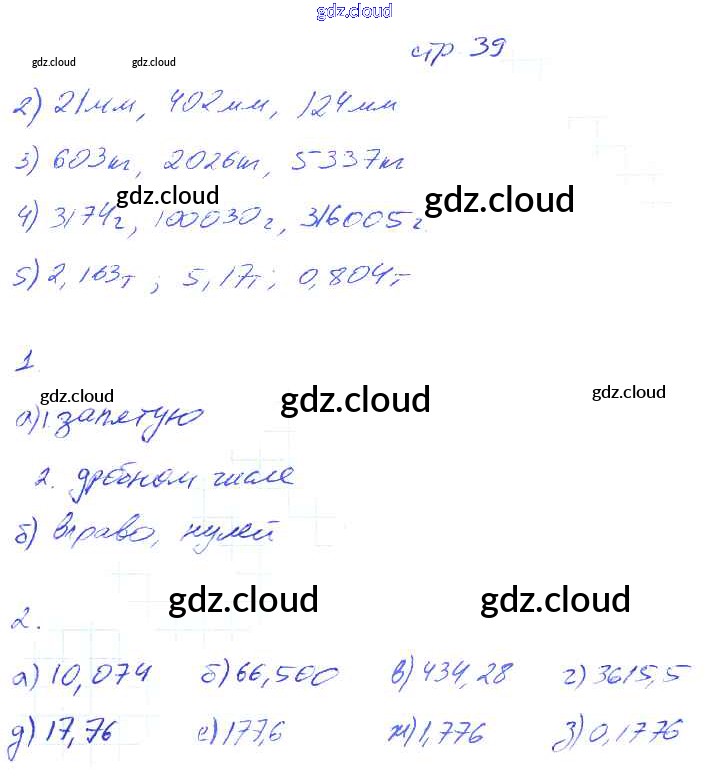 gdz.cloud
стр 39
gdz.cloud gdz.cloud
2) 21мм, 402мм, 124мм
3) 603кг, 2026кг, 5337кг
gdz.cloud gdz.cloud
4) 3174г, 100030г, 316005г
5) 2,163т; 5,17т; 0,804т
1
gdz.cloud gdz.cloud gdz.cloud
а) 1. запятую
2. дробном числе
б) вправо, нулей
gdz.cloud gdz.cloud
2.
а) 10,074 б) 66,500 в) 434,28 г) 3615,5
д) 17,76 е) 177,6 ж) 1,776 з) 0,1776